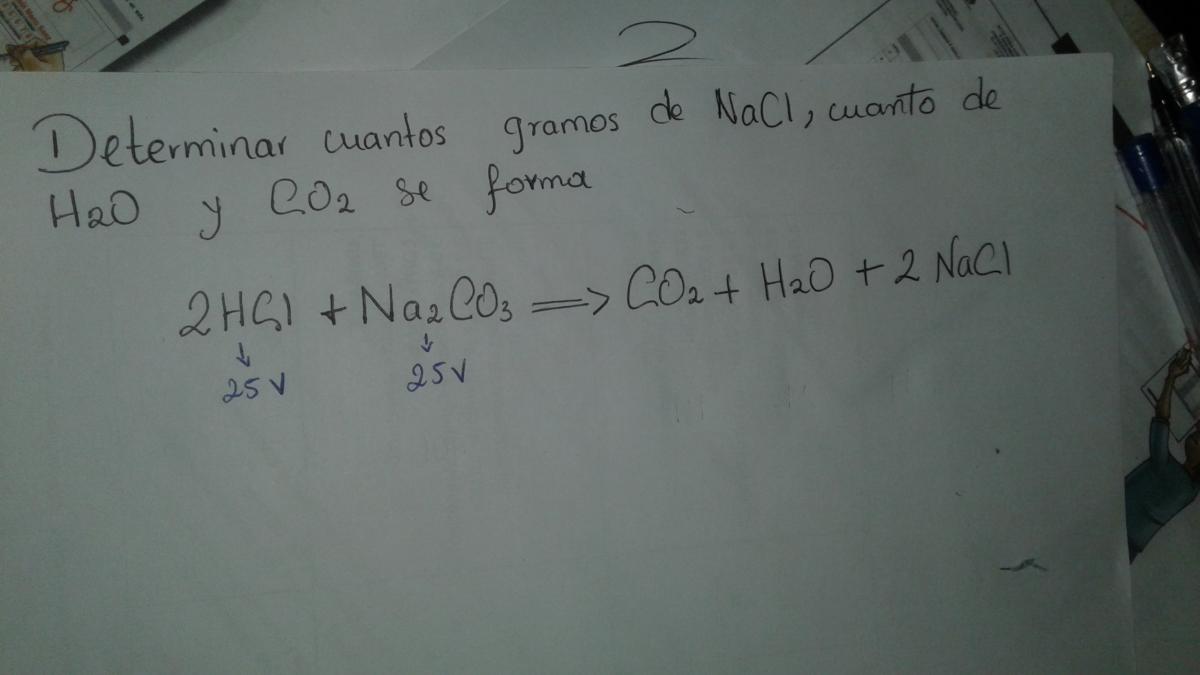 2
Determinar cuantos gramos de NaCl, cuanto de
H2O y CO2 se forma
2HCl + Na2CO3 => CO2 + H2O + 2 NaCl
↓ ↓
25 V 25 V